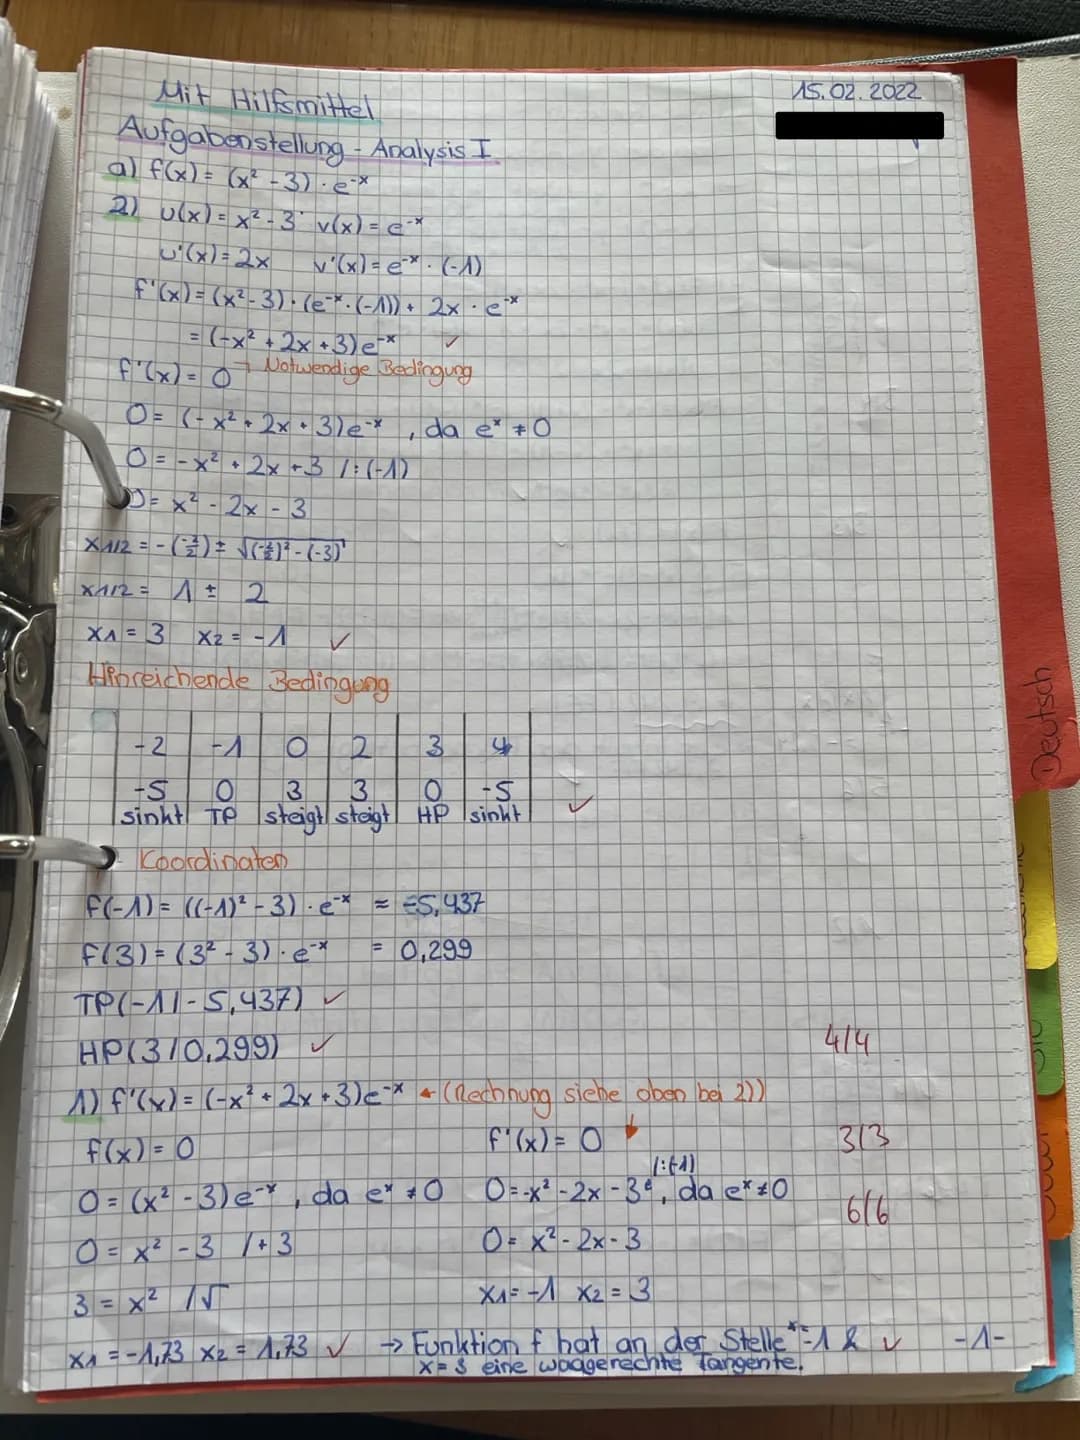 Mit Hilfsmittel
15.02.2022
Aufgabenstellung - Analysis I
a) f(x) = (x² - 3) · e⁻ˣ
2) u(x) = x² - 3 v(x) = e⁻ˣ
u'(x) = 2x v'(x) = e⁻ˣ · (-1)
f'(x) = (x² - 3) · (e⁻ˣ · (-1)) + 2x · e⁻ˣ
= (-x² + 2x + 3)e⁻ˣ ✓
f'(x) = 0 → Notwendige Bedingung
0 = (-x² + 2x + 3)e⁻ˣ , da eˣ ≠ 0
0 = -x² + 2x + 3 /:(-1)
0 = x² - 2x - 3
x1/2 = -(-2/2) ± √((-2/2)² - (-3))
x1/2 = 1 ± 2
x1 = 3 x2 = -1 ✓
Hinreichende Bedingung
-2 -1 0 2 3 4
-5 0 3 3 0 -5
sinkt TP steigt steigt HP sinkt ✓
Koordinaten
f(-1) = ((-1)² - 3) · e⁻ˣ ≈ -5,437
f(3) = (3² - 3) · e⁻ˣ = 0,299
TP(-1/-5,437) ✓
HP(3/0,299) ✓
4/4
1) f'(x) = (-x² + 2x + 3)e⁻ˣ ← (Rechnung siehe oben bei 2))
f(x) = 0 f'(x) = 0
3/3
/:(-1)
0 = (x² - 3)e⁻ˣ , da eˣ ≠ 0 0 = -x² - 2x - 3 , da eˣ ≠ 0
6/6
0 = x² - 3 /+3 0 = x² - 2x - 3
3 = x² /√ x1 = -1 x2 = 3
x1 = -1,73 x2 = 1,73 ✓ → Funktion f hat an der Stelle x=-1 & ✓ -1-
x=3 eine waagerechte Tangente.
Deutsch